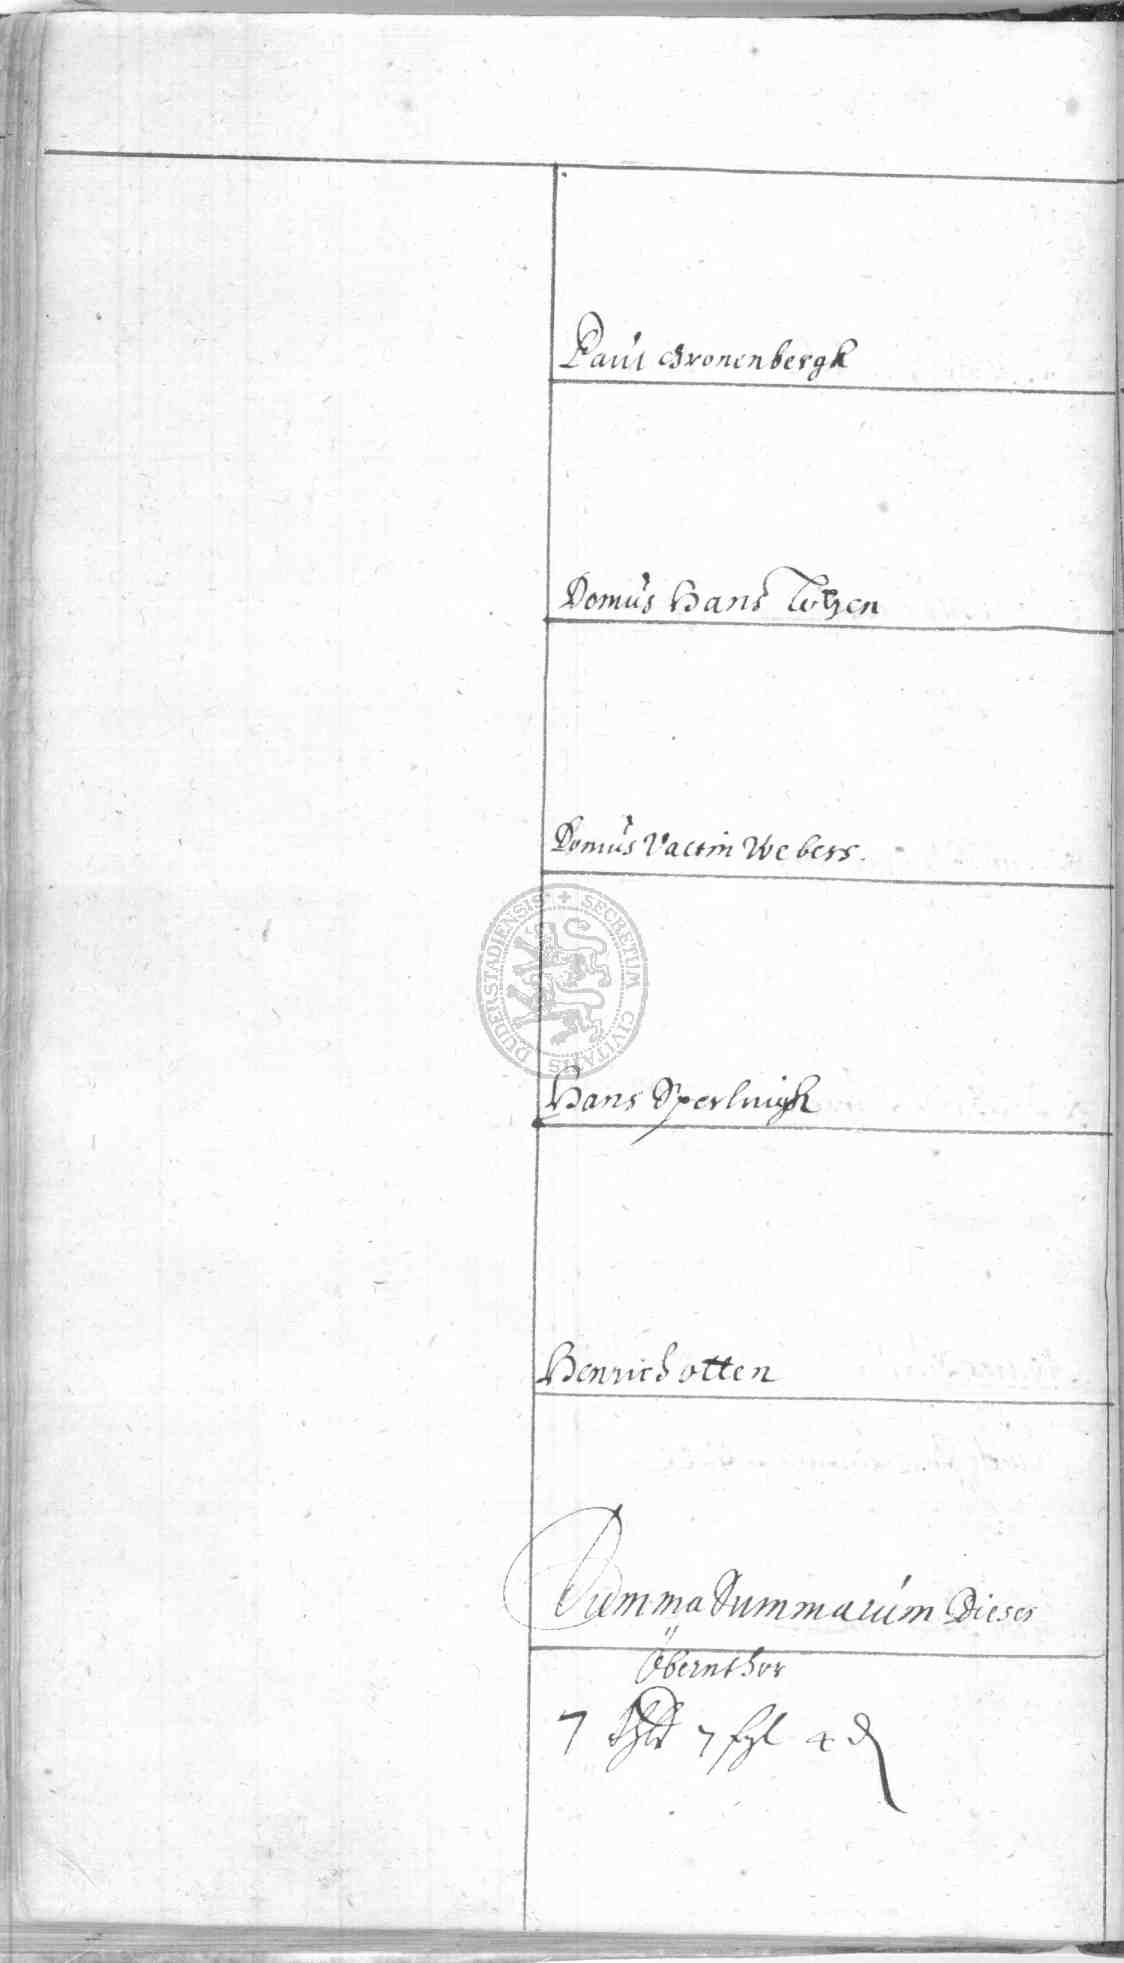 Paul Gronenbergk
Domus Hans
Domus Valtin Webers.
DUDERSTADIENSIS + SECRETUM CIVITATIS
Hans Sperlingk
Henrich otten
Summa Summarum Dieser
Öbernthor
7 7 4